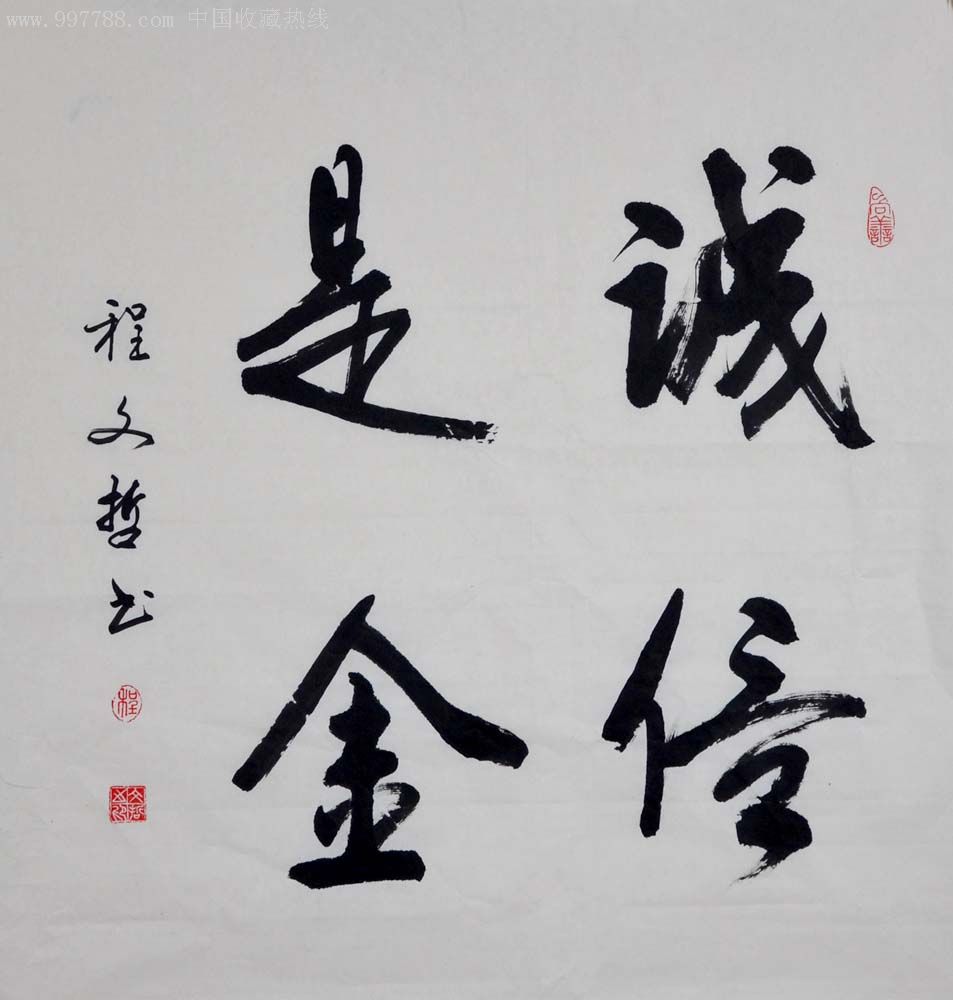 www.997788.com 中国收藏热线
诚信
是金
程文哲书
尚善
程